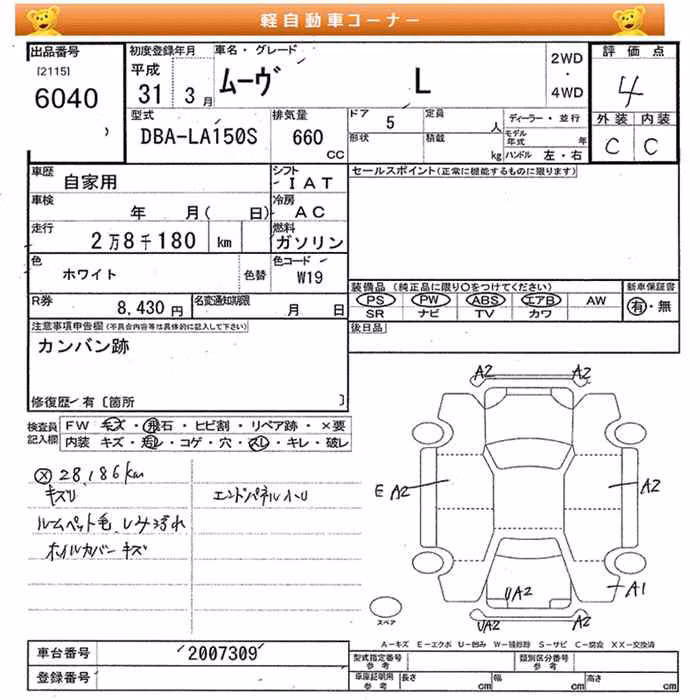 軽自動車コーナー
出品番号 初度登録年月 車名・グレード 2WD・4WD 評価点
[2115]
6040
平成
31 3月
ムーヴ L
4
型式 排気量 ドア 5 定員 人 ディーラー・並行 外装 内装
DBA-LA150S 660 CC
形状 積載 kg モデル年式 年
ハンドル 左・右
C C
車歴 シフト セールスポイント(正常に機能するものに限ります)
自家用 IAT
車検 冷房
年 月( 日) AC
走行 燃料
2万8千180 km ガソリン
色 色替 色コード
ホワイト W19
装備品 (純正品に限り○をつけてください) 新車保証書
PS PW ABS エアB AW 有・無
SR ナビ TV カワ
R券 8,430円 名変通知期限 月 日
後日品
注意事項申告欄(不具合内容等は具体的に記入して下さい)
カンバン跡
修復歴・有〔箇所 〕
検査員記入欄
FW キズ・飛石・ヒビ割・リペア跡・×要
内装 キズ・汚レ・コゲ・穴・スレ・キレ・破レ
28,186km
キズU
エンドパネル小U
ルームペット毛、シミヨゴレ
ホイルカバーキズ
A2 A2
E A2 A2
UA2 A1
UA2 A2
スペア
A－キズ E－エクボ U－凹み W－補修跡 S－サビ C－腐食 XX－交換済
車台番号 2007309
登録番号
型式指定番号 参考 類別区分番号 参考
車庫証明用 参考 長さ cm 幅 cm 高さ cm